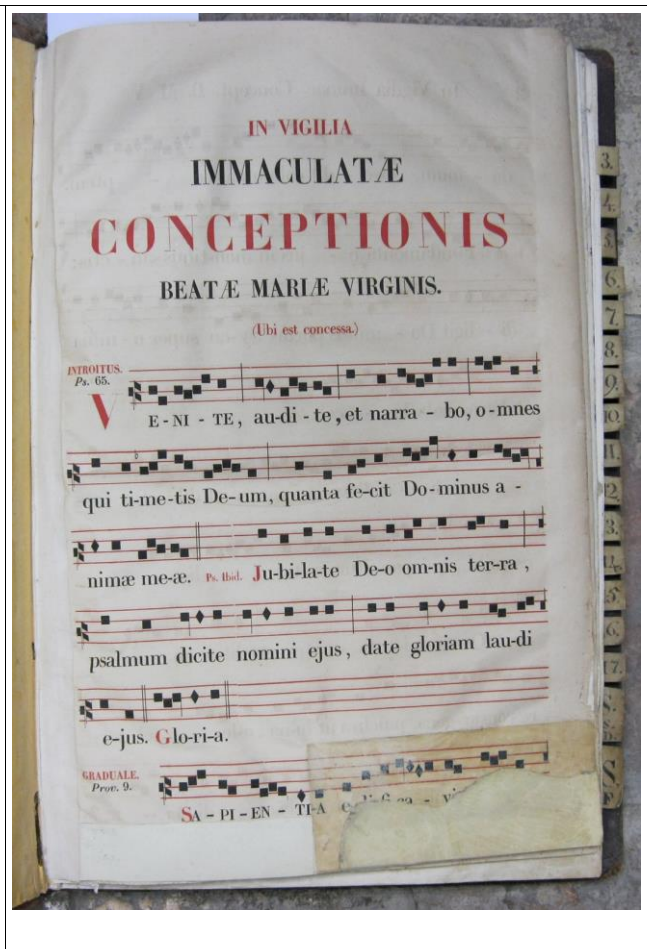 IN VIGILIA
IMMACULATÆ
CONCEPTIONIS
BEATÆ MARIÆ VIRGINIS.
(Ubi est concessa.)
INTROITUS.
Ps. 65.
VE-NI-TE, au-di-te, et narra-bo, o-mnes
qui ti-me-tis De-um, quanta fe-cit Do-minus a-
nimæ me-æ. Ps. Ibid. Ju-bi-la-te De-o om-nis ter-ra,
psalmum dicite nomini ejus, date gloriam lau-di
e-jus. Glo-ri-a.
GRADUALE.
Prov. 9.
SA-PI-EN-TI-A
3.
4.
5.
6.
7.
8.
9.
10.
11.
12.
3.
5.
6.
17.
S.